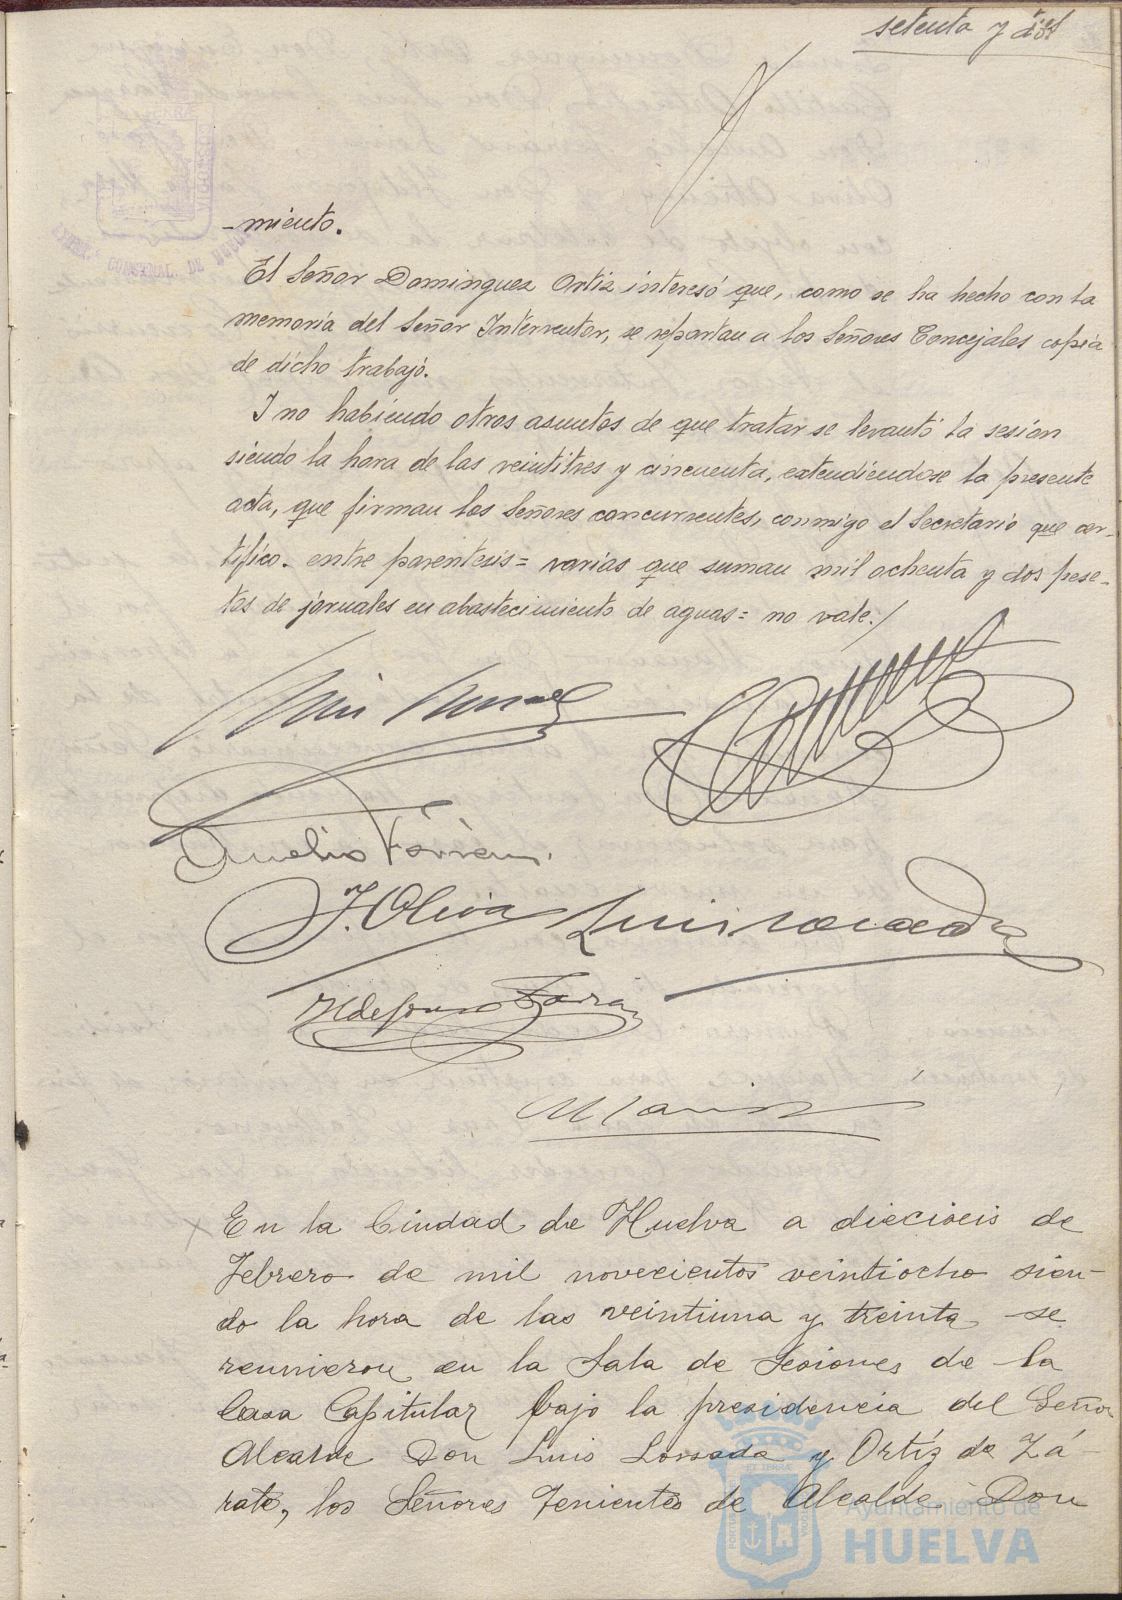 setenta y dos
-miento.
El Señor Dominguez Ortiz interesó que, como se ha hecho con la
memoria del Señor Interventor, se repartan a los Señores Concejales copia
de dicho trabajo.
I no habiendo otros asuntos de que tratar se levantó la sesión
siendo la hora de las veintitres y cincuenta, extendiendose la presente
acta, que firman los Señores concurrentes, conmigo el Secretario que cer-
tifico. entre parentesis= varias que suman mil ochenta y dos pese-
tas de jornales en abastecimiento de aguas= no vale./
J. Oliva Luis Losada
Ildefonso
En la Ciudad de Huelva a dieciseis de
Febrero de mil novecientos veintiocho sien-
do la hora de las veintiuna y treinta se
reunieron en la Sala de Sesiones de la
Casa Capitular bajo la presidencia del Señor
Alcalde Don Luis Lossada y Ortíz de Zá-
rate, los Señores Tenientes de Alcalde Don
Ayuntamiento de
HUELVA